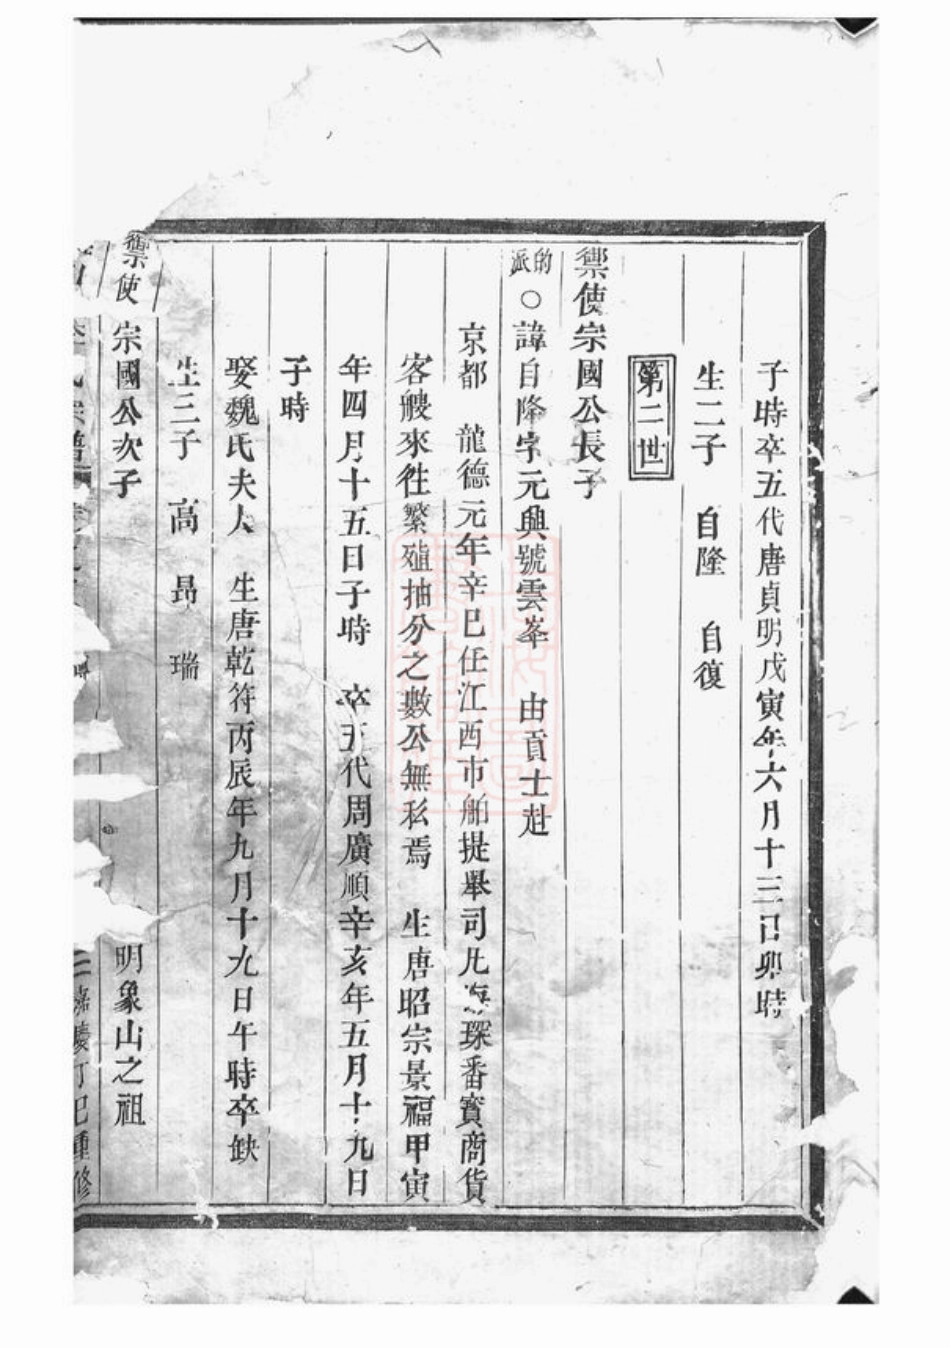 子時卒五代唐貞明戊寅年六月十三己卯時
生二子　自隆　自復
第二世
禦使宗國公長子
的派○諱自降字元興號雲峯　由貢士赴
京都　龍德元年辛巳任江西市舶提舉司凡海琛番寳商貨
客艘來徃繁殖抽分之數公無私焉　生唐昭宗景福甲寅
年四月十五日子時　卒五代周廣順辛亥年五月十九日
子時
娶魏氏夫人　生唐乾符丙辰年九月十九日午時卒缺
生三子　高　昻　瑞
禦使宗國公次子　明象山之祖
氏宗譜　二　嘉慶丁巳重修